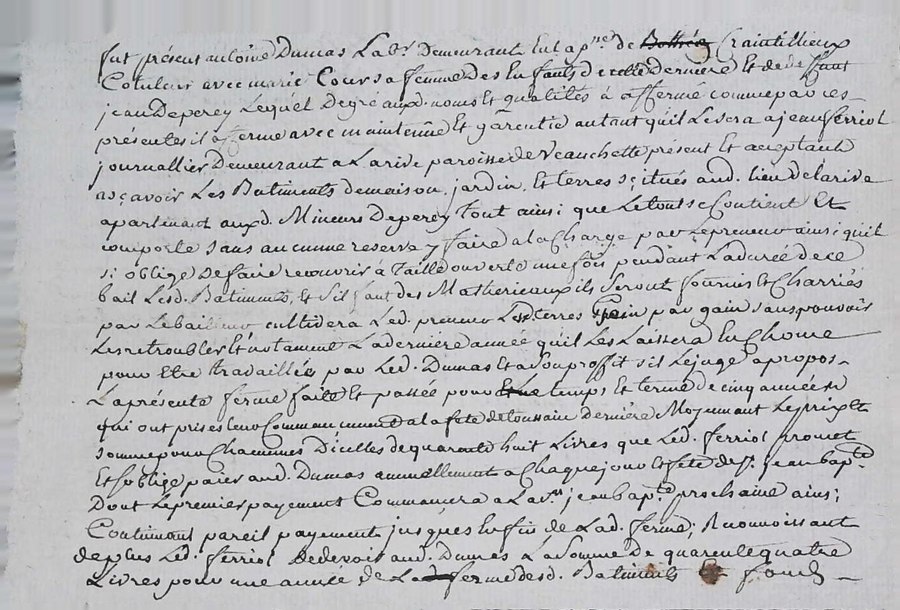 fut présent antoine Dumas Lab.r Demeurant En La p.sse de Craintillieux
Cotuteur avec marie Cour sa femme Des Enfants de celle Derniere Et de deffunt
jean Deperey Lequel De gré auxd. noms et qualités à affermé comme par ces
présentes il afferme avec maintenue Et garentie autant quil Le sera a jean ferriol
journallier Demeurant a La rive paroisse de Veauchette présent Et acceptant
asçavoir Les Batiments de maison, jardin, Et terres sçitués aud. lieu de la rive
apartenant auxd. Mineurs Deperey Tout ainsi que Le tout se Contient Et
comporte sans aucunne reserve y faire a la Charge par Le preneur ainsi quil
si oblige De faire recouvrir à Taille ouverte une fois pendant La durée de ce
bail Lesd. Batiments, Et sil faut des Mathérieaux ils Seront fournis Et Charriés
par Le bailleur cultivera Led. preneur Les terres gain par gain sans pouvoir
Les retroubler Et notament La derniere année quil Les Laissera En Chome
pour Etre travaillées par Led. Dumas Et a son proffit s'il Le juge apropos
La présente ferme faite Et passée pour Le temps Et terme de cinq années
qui ont prises leur Commancement a la fete de toussaint Derniere Moyennant Le prix Et
somme pour Chacunnes Dicelles de quarante huit Livres que Led. ferriol promet
Et soblige paier aud. Dumas annuellement a Chaque jour Et fete de S.t jean bap.te
Dont Le premier payement Commancera a La S.t jean bap.te prochaine ainsi
Continuant pareil payement jusques En fin de Lad. ferme; Reconnoissant
de plus Led. ferriol De devoir aud. Dumas La Somme De quarente quatre
Livres pour une année de La ferme desd. Batiments Et fonds